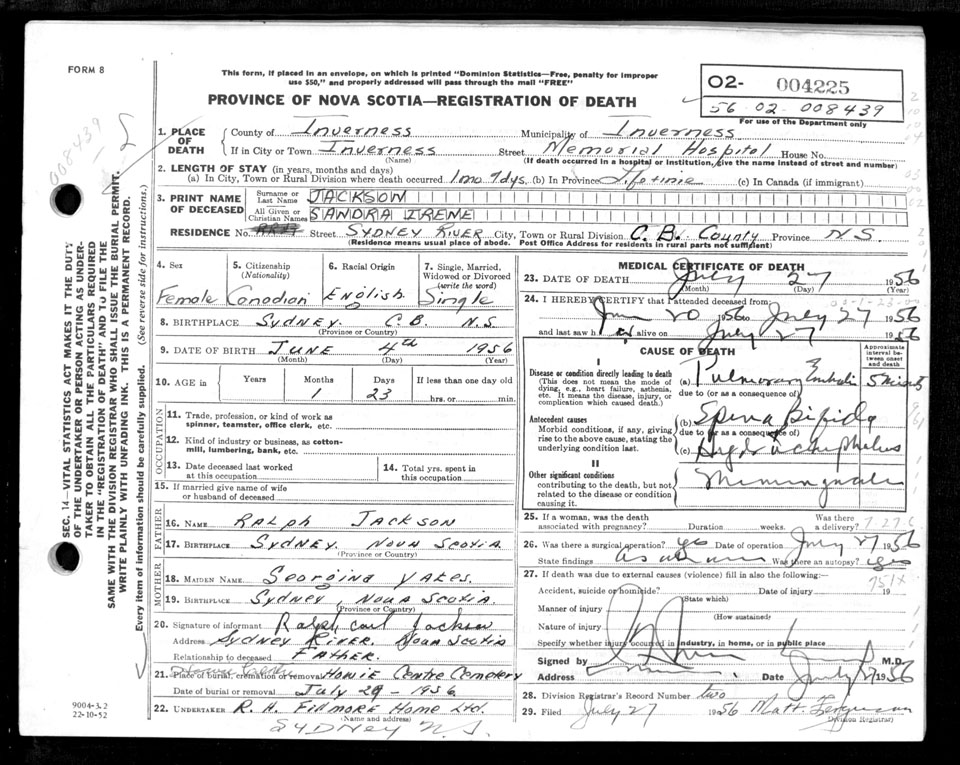 FORM 8
This form, if placed in an envelope, on which is printed "Dominion Statistics—Free, penalty for improper
use $50," and properly addressed will pass through the mail "FREE"
PROVINCE OF NOVA SCOTIA—REGISTRATION OF DEATH
02- 004225
56-02-008439
For use of the Department only
008439
SEC. 14—VITAL STATISTICS ACT MAKES IT THE DUTY
OF THE UNDERTAKER OR PERSON ACTING AS UNDER-
TAKER TO OBTAIN ALL THE PARTICULARS REQUIRED
IN THE "REGISTRATION OF DEATH" AND TO FILE THE
SAME WITH THE DIVISION REGISTRAR WHO SHALL ISSUE THE BURIAL PERMIT.
WRITE PLAINLY WITH UNFADING INK. THIS IS A PERMANENT RECORD.
Every item of information should be carefully supplied. (See reverse side for instructions.)
1. PLACE OF DEATH
County of Inverness Municipality of Inverness
If in City or Town Inverness Street Memorial Hospital House No.
(Name) (If death occurred in a hospital or institution, give the name instead of street and number)
2. LENGTH OF STAY (in years, months and days)
(a) In City, Town or Rural Division where death occurred 1 mo 7 dys. (b) In Province Lifetime (c) In Canada (if immigrant)
3. PRINT NAME OF DECEASED
Surname or Last Name JACKSON
All Given or Christian Names SANDRA IRENE
RESIDENCE No. Street SYDNEY RIVER City, Town or Rural Division C.B. County Province N.S.
(Residence means usual place of abode. Post Office Address for residents in rural parts not sufficient)
4. Sex
Female
5. Citizenship (Nationality)
Canadian
6. Racial Origin
English
7. Single, Married, Widowed or Divorced (write the word)
Single
8. BIRTHPLACE SYDNEY. C.B. N.S.
(Province or Country)
9. DATE OF BIRTH JUNE 4th 1956
(Month) (Day) (Year)
10. AGE in Years Months Days If less than one day old
1 23 hrs. or min.
OCCUPATION
11. Trade, profession, or kind of work as
spinner, teamster, office clerk, etc.
12. Kind of industry or business, as cotton-
mill, lumbering, bank, etc.
13. Date deceased last worked
at this occupation
14. Total yrs. spent in
this occupation
15. If married give name of wife
or husband of deceased
FATHER
16. NAME RALPH JACKSON
17. BIRTHPLACE SYDNEY. NOVA SCOTIA
(Province or Country)
MOTHER
18. MAIDEN NAME Georgina Yates.
19. BIRTHPLACE Sydney, NOVA SCOTIA.
(Province or Country)
20. Signature of informant Ralph Carl Jackson
Address SYDNEY RIVER. NOVA SCOTIA
Relationship to deceased FATHER.
21. Place of burial, cremation or removal Howie Centre Cemetery
Date of burial or removal July 29 - 1956
22. UNDERTAKER R. A. FILLMORE Home Ltd.
(Name and address)
SYDNEY N.S.
9004-3.2
22-10-52
MEDICAL CERTIFICATE OF DEATH
23. DATE OF DEATH July 27 1956
(Month) (Day) (Year)
24. I HEREBY CERTIFY that I attended deceased from:
June 20 1956 to July 27 1956
and last saw h er alive on July 27 1956
CAUSE OF DEATH
Approximate interval between onset and death
I
Disease or condition directly leading to death
(This does not mean the mode of
dying, e.g., heart failure, asthenia,
etc. It means the disease, injury, or
complication which caused death.)
(a) Pulmonary Emboli 5 mins
due to (or as a consequence of)
Antecedent causes
Morbid conditions, if any, giving
rise to the above cause, stating the
underlying condition last.
(b) Spina Bifida
due to (or as a consequence of)
(c) Hydrocephelus
II
Other significant conditions
contributing to the death, but not
related to the disease or condition
causing it.
25. If a woman, was the death
associated with pregnancy? Duration weeks. Was there a delivery?
26. Was there a surgical operation? yes Date of operation July 27 1956
State findings as above Was there an autopsy? yes
27. If death was due to external causes (violence) fill in also the following:—
751X
Accident, suicide or homicide? Date of injury 19
(State which)
Manner of injury
(How sustained)
Nature of injury
Specify whether injury occurred in industry, in home, or in public place
Signed by M.D.
Address Date July 27 1956
28. Division Registrar's Record Number two
29. Filed July 27 1956 Matt. Ferguson
(Division Registrar)